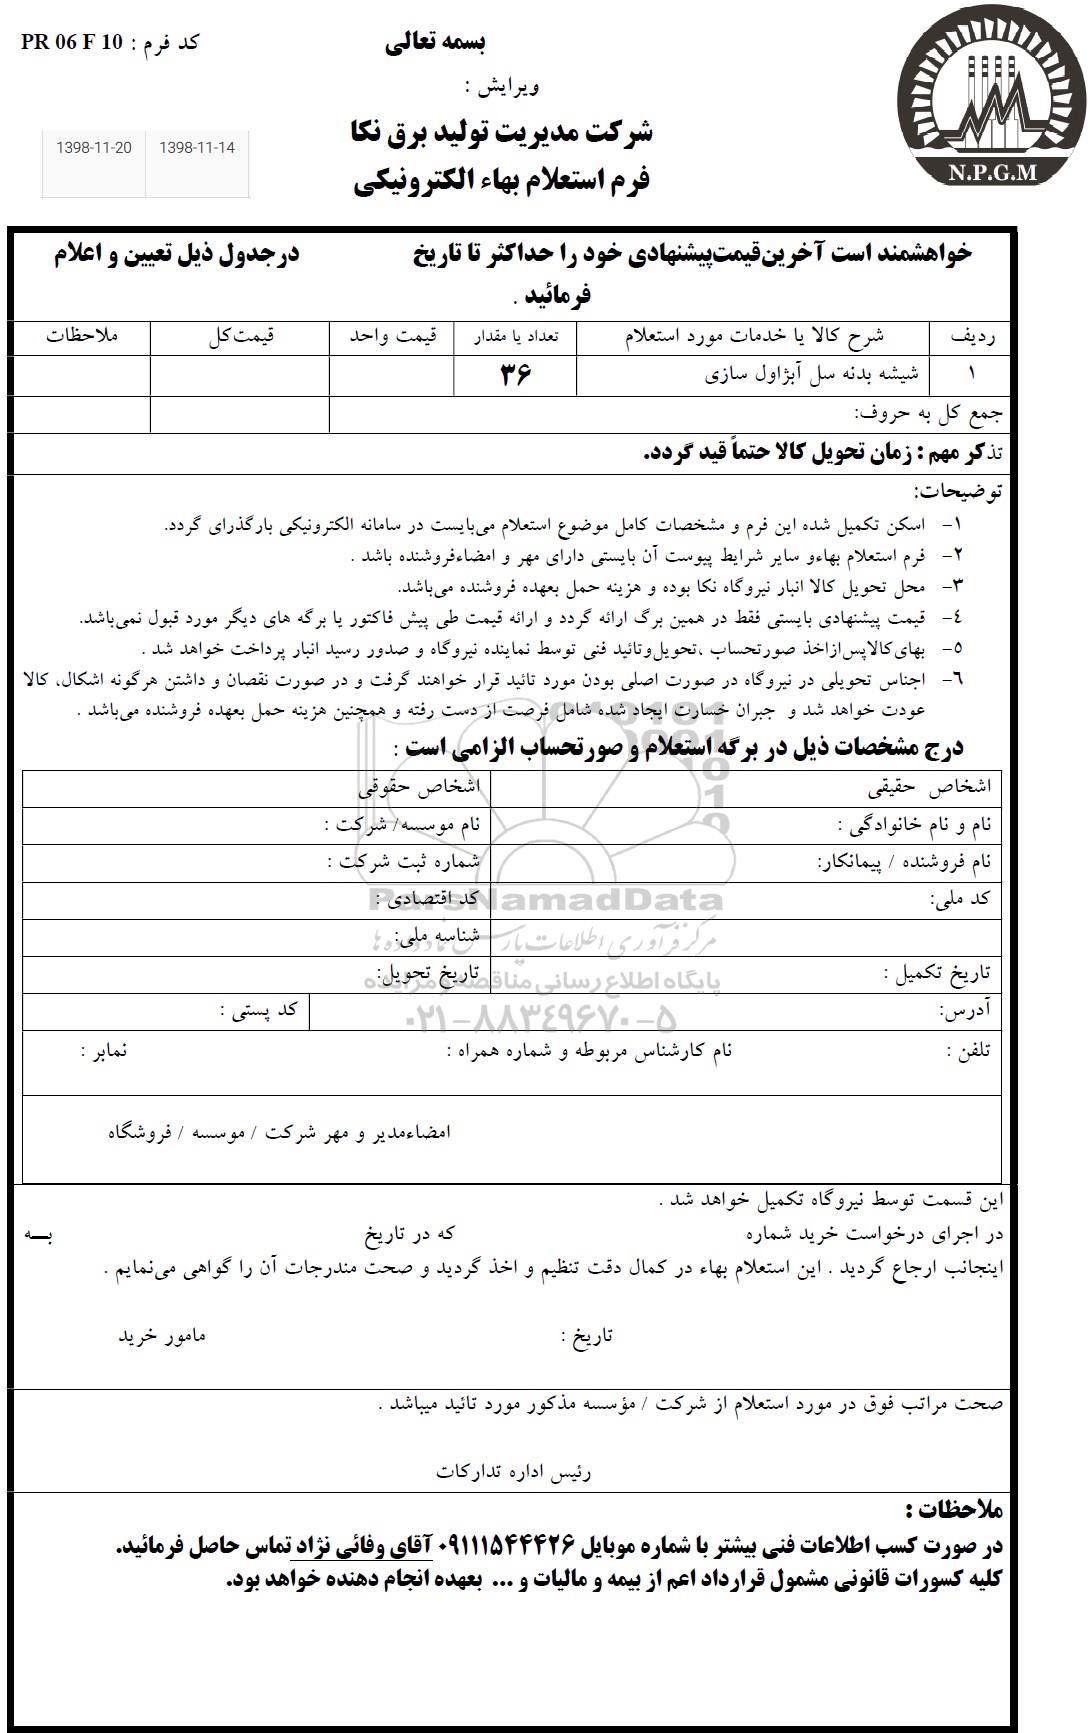 بسمه تعالی
کد فرم : PR 06 F 10
ویرایش :
شرکت مدیریت تولید برق نکا
فرم استعلام بهاء الکترونیکی
1398-11-20 1398-11-14
N.P.G.M
خواهشمند است آخرین‌قیمت‌پیشنهادی خود را حداکثر تا تاریخ درجدول ذیل تعیین و اعلام
فرمائید .
ردیف شرح کالا یا خدمات مورد استعلام تعداد یا مقدار قیمت واحد قیمت‌کل ملاحظات
۱ شیشه بدنه سل آبژاول سازی ۳۶
جمع کل به حروف:
تذکر مهم : زمان تحویل کالا حتماً قید گردد.
توضیحات:
۱- اسکن تکمیل شده این فرم و مشخصات کامل موضوع استعلام می‌بایست در سامانه الکترونیکی بارگذرای گردد.
۲- فرم استعلام بهاءو سایر شرایط پیوست آن بایستی دارای مهر و امضاءفروشنده باشد .
۳- محل تحویل کالا انبار نیروگاه نکا بوده و هزینه حمل بعهده فروشنده می‌باشد.
۴- قیمت پیشنهادی بایستی فقط در همین برگ ارائه گردد و ارائه قیمت طی پیش فاکتور یا برگه های دیگر مورد قبول نمی‌باشد.
۵- بهای‌کالاپس‌ازاخذ صورتحساب ،تحویل‌وتائید فنی توسط نماینده نیروگاه و صدور رسید انبار پرداخت خواهد شد .
۶- اجناس تحویلی در نیروگاه در صورت اصلی بودن مورد تائید قرار خواهند گرفت و در صورت نقصان و داشتن هرگونه اشکال، کالا
عودت خواهد شد و جبران خسارت ایجاد شده شامل فرصت از دست رفته و همچنین هزینه حمل بعهده فروشنده می‌باشد .
درج مشخصات ذیل در برگه استعلام و صورتحساب الزامی است :
اشخاص حقیقی اشخاص حقوقی
نام و نام خانوادگی : نام موسسه/ شرکت :
نام فروشنده / پیمانکار: شماره ثبت شرکت :
کد ملی: کد اقتصادی :
ParsNamadData
شناسه ملی:
مرکز فرآوری اطلاعات پارس نماد داده ها
تاریخ تکمیل : تاریخ تحویل:
پایگاه اطلاع رسانی مناقصه و مزایده
آدرس: کد پستی :
۰۲۱-۸۸۳۴۹۶۷۰-۵
تلفن : نام کارشناس مربوطه و شماره همراه : نمابر :
امضاءمدیر و مهر شرکت / موسسه / فروشگاه
این قسمت توسط نیروگاه تکمیل خواهد شد .
در اجرای درخواست خرید شماره که در تاریخ بــه
اینجانب ارجاع گردید . این استعلام بهاء در کمال دقت تنظیم و اخذ گردید و صحت مندرجات آن را گواهی می‌نمایم .
تاریخ : مامور خرید
صحت مراتب فوق در مورد استعلام از شرکت / مؤسسه مذکور مورد تائید میباشد .
رئیس اداره تدارکات
ملاحظات :
در صورت کسب اطلاعات فنی بیشتر با شماره موبایل ۰۹۱۱۱۵۴۴۴۲۶ آقای وفائی نژاد تماس حاصل فرمائید.
کلیه کسورات قانونی مشمول قرارداد اعم از بیمه و مالیات و ... بعهده انجام دهنده خواهد بود.